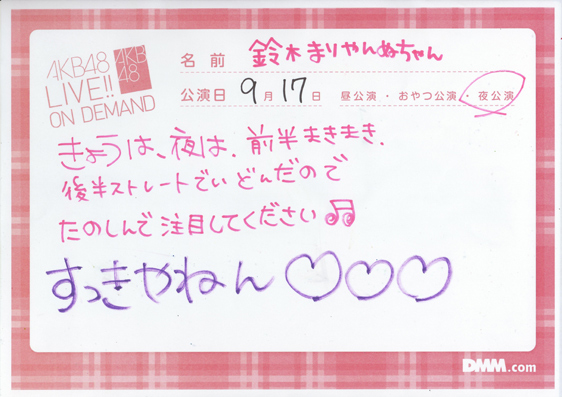 AKB48
LIVE!!
ON DEMAND
AKB
48
名前 鈴木まりやんぬちゃん
公演日 9月17日 昼公演・おやつ公演・夜公演
きょうは、夜は、前半まきまき、
後半ストレートでいどんだので
たのしんで注目してください♫
すっきやねん♡♡♡
DMM.com